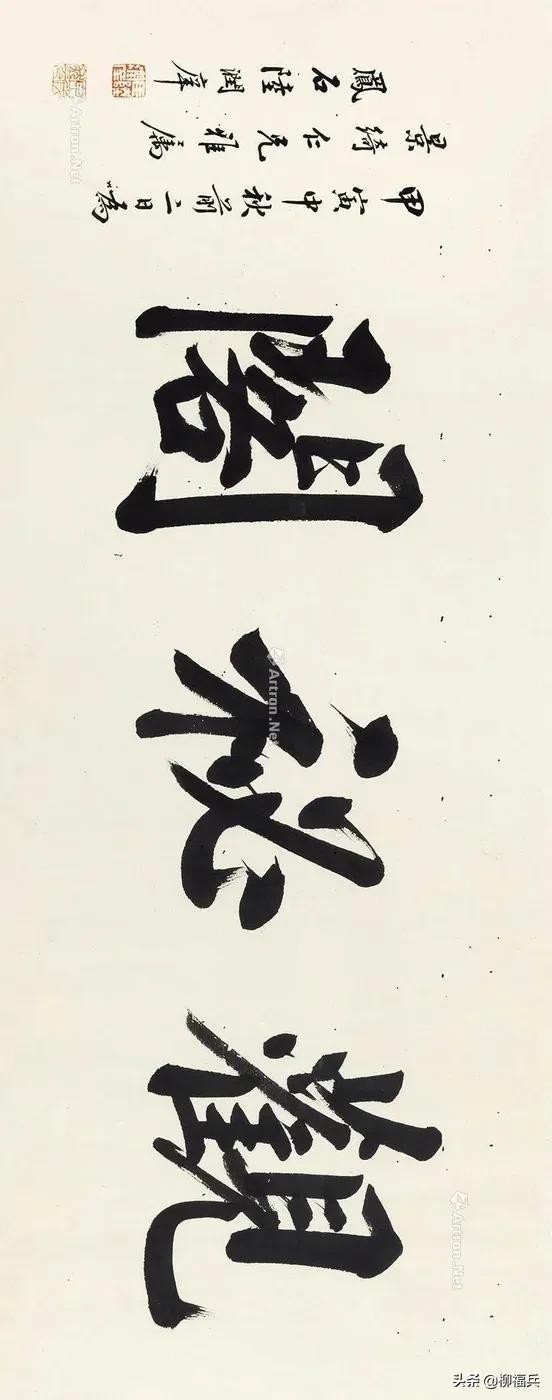 觀祕閣
甲寅中秋前二日為
景綺仁兄雅屬
鳳石陸潤庠
Artron.Net
Artron.Net
Artron.Net
头条 @柳福兵